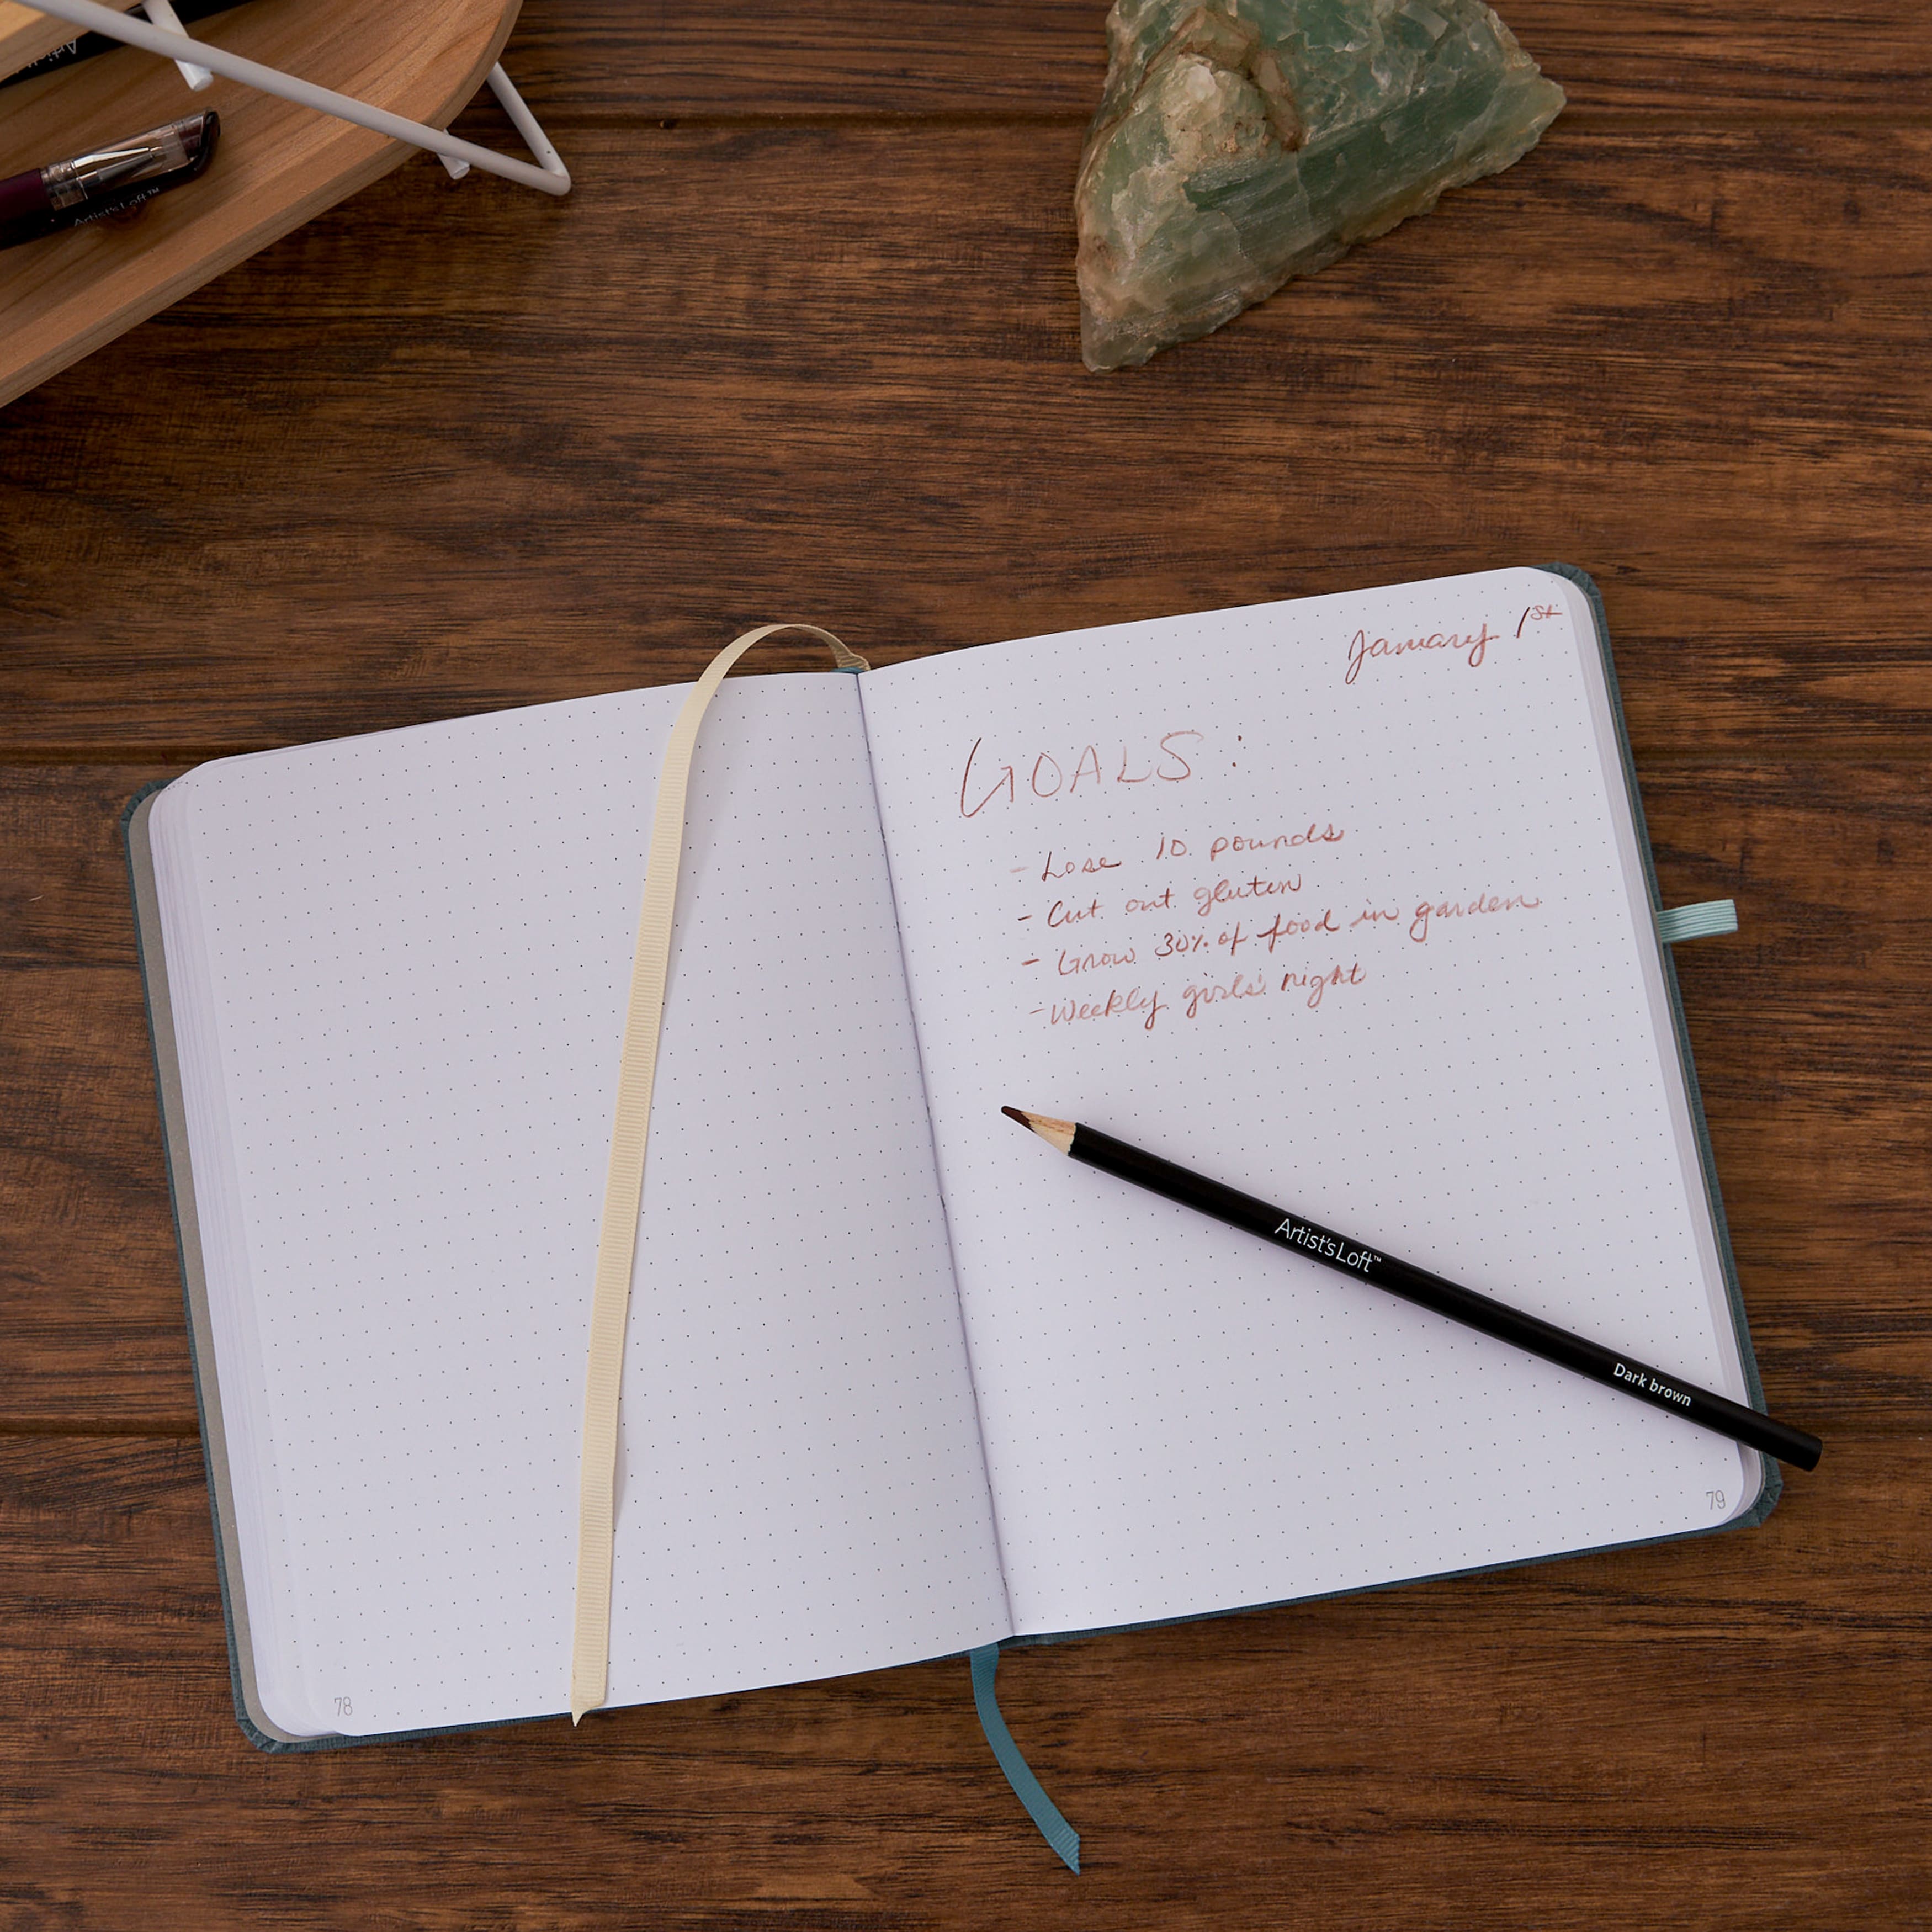 Artist's Loft™
January 1st
GOALS:
- Lose 10 pounds
- Cut out gluten
- Grow 30% of food in garden
- Weekly girls' night
Artist's Loft™
Dark brown
79
78